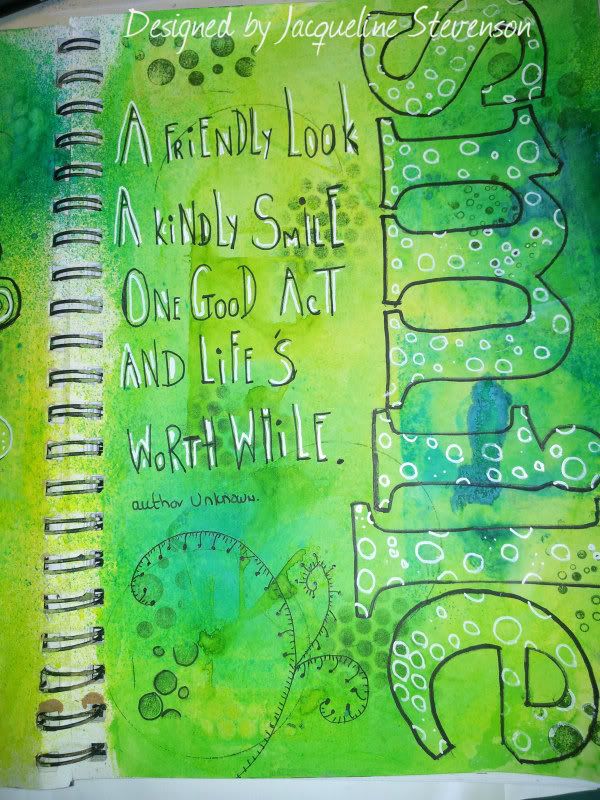 Designed by Jacqueline Stevenson
A FRiENDLY LOOK
A KiNDLY SMiLE
ONE GOOD ACT
AND LiFE'S
WORTH WHiLE.
author Unknown.
smile